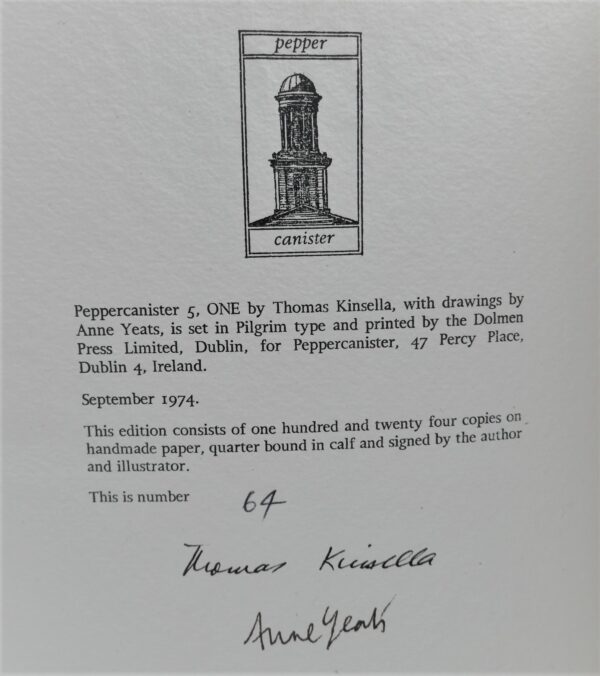 pepper
canister
Peppercanister 5, ONE by Thomas Kinsella, with drawings by
Anne Yeats, is set in Pilgrim type and printed by the Dolmen
Press Limited, Dublin, for Peppercanister, 47 Percy Place,
Dublin 4, Ireland.
September 1974.
This edition consists of one hundred and twenty four copies on
handmade paper, quarter bound in calf and signed by the author
and illustrator.
This is number 64
Thomas Kinsella
Anne Yeats